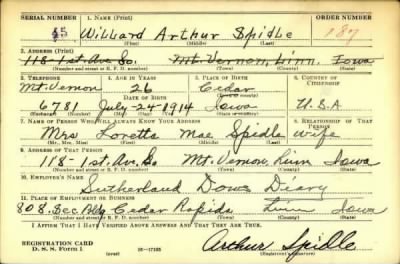 SERIAL NUMBER 1. NAME (Print) ORDER NUMBER
45 Willard Arthur Spidle 187
(First) (Middle) (Last)
2. ADDRESS (Print)
118-1st. Ave. So. Mt. Vernon, Linn, Iowa
(Number and street or R. F. D. number) (Town) (County) (State)
3. TELEPHONE 4. AGE IN YEARS 5. PLACE OF BIRTH 6. COUNTRY OF CITIZENSHIP
Mt. Vernon 26 Cedar
DATE OF BIRTH (Town or county)
6781 July-24-1914 Iowa U.S.A
(Exchange) (Number) (Mo.) (Day) (Yr.) (State or country)
7. NAME OF PERSON WHO WILL ALWAYS KNOW YOUR ADDRESS 8. RELATIONSHIP OF THAT PERSON
Mrs Loretta Mae Spidle wife
(Mr., Mrs., Miss) (First) (Middle) (Last)
9. ADDRESS OF THAT PERSON
118-1st. Ave. So Mt. Vernon, Linn Iowa
(Number and street or R. F. D. number) (Town) (County) (State)
10. EMPLOYER'S NAME
Sutherland Dows Diary
11. PLACE OF EMPLOYMENT OR BUSINESS
808. Sec. Bldg Cedar Rapids Linn Iowa
(Number and street or R. F. D. number) (Town) (County) (State)
I AFFIRM THAT I HAVE VERIFIED ABOVE ANSWERS AND THAT THEY ARE TRUE.
REGISTRATION CARD
D. S. S. Form 1 (over) 16-17105 Arthur Spidle
(Registrant's signature)